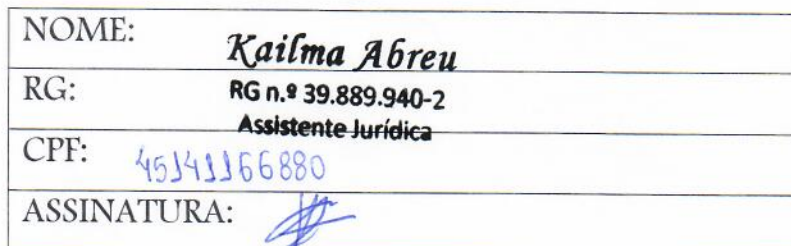 NOME: Kailma Abreu
RG: RG n.º 39.889.940-2
Assistente Jurídica
CPF: 45141166880
ASSINATURA: